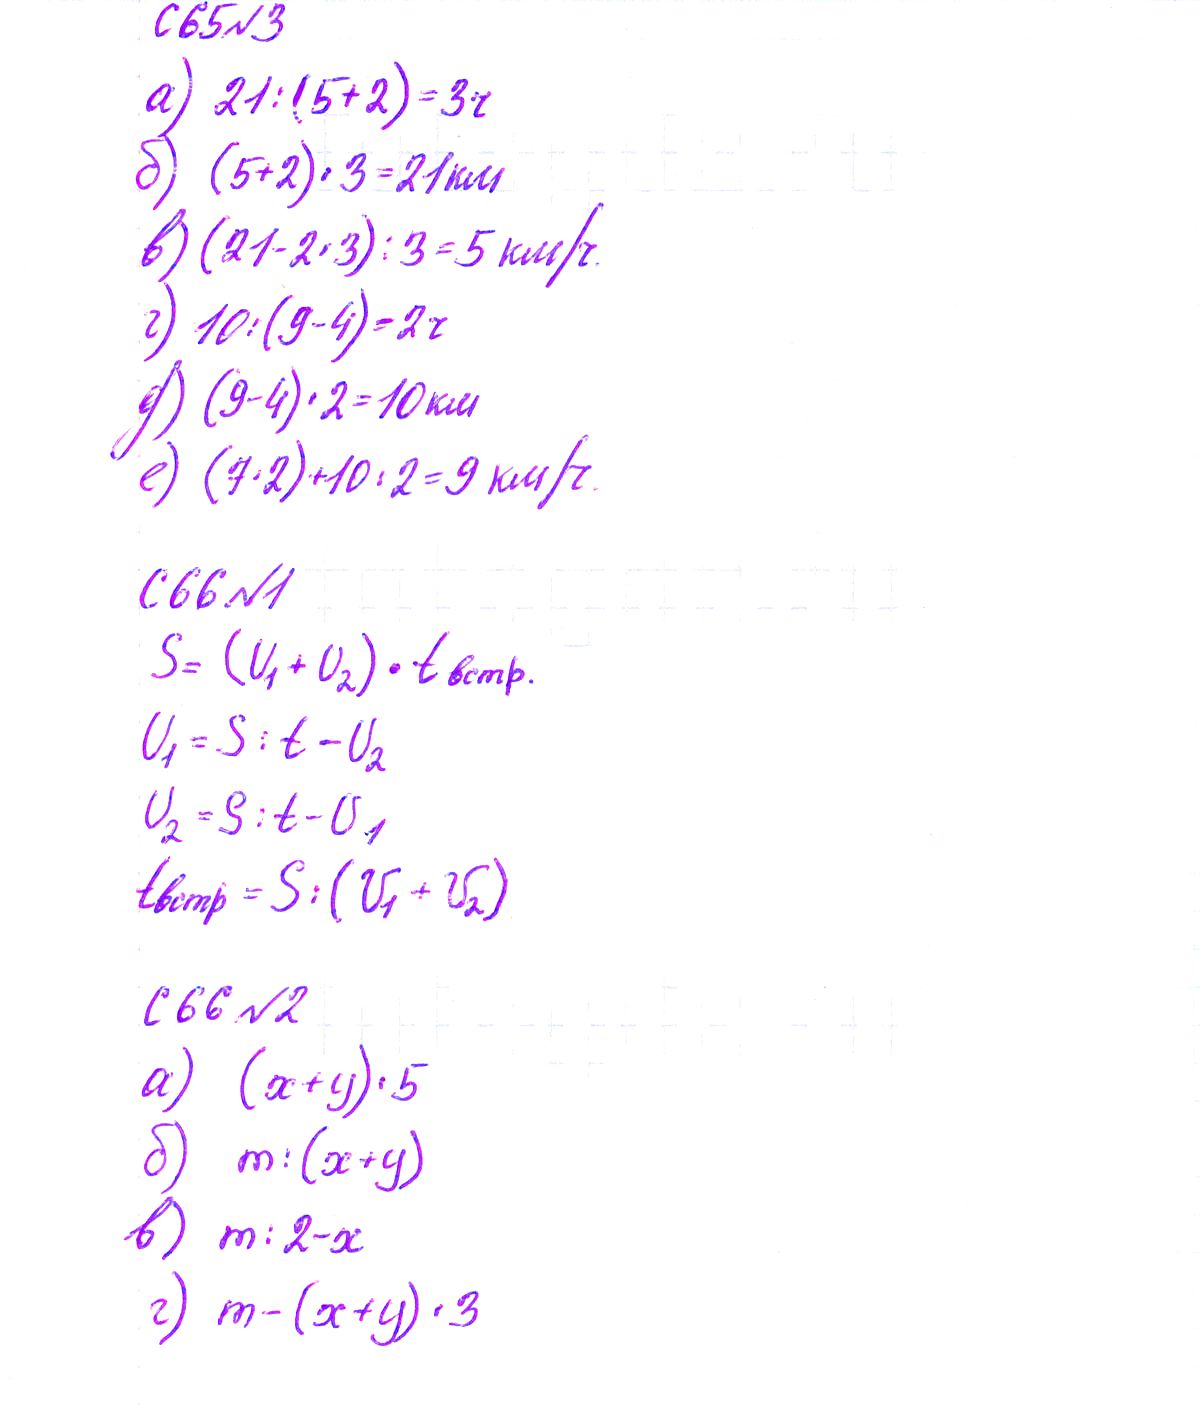 С65№3
а) 21:(5+2)=3ч
б) (5+2)·3=21км
в) (21-2·3):3=5 км/ч.
г) 10:(9-4)=2ч
д) (9-4)·2=10км
е) (7·2)+10:2=9 км/ч.
С66№1
S=(U₁+U₂)·t встр.
U₁=S:t-U₂
U₂=S:t-U₁
tвстр=S:(U₁+U₂)
С66№2
а) (x+y)·5
б) m:(x+y)
в) m:2-x
г) m-(x+y)·3